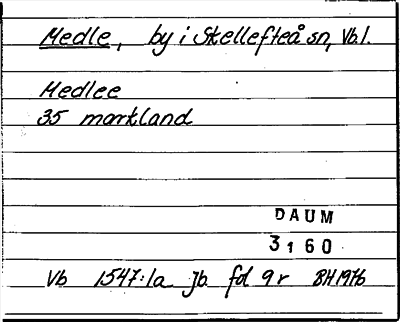 Medle, by i Skellefteå sn, Vb.l.
Medlee
35 markland
DAUM
3160
Vb 1547:1a Jb fol 9r BH1976